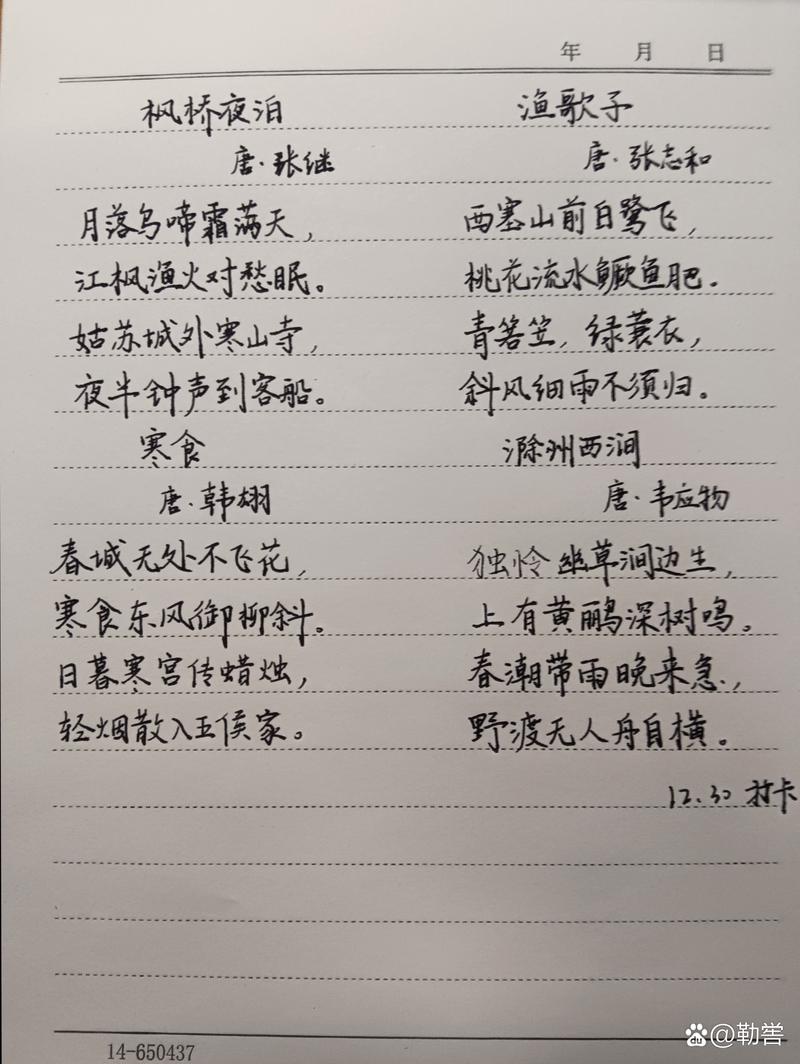 年 月 日
枫桥夜泊
唐·张继
月落乌啼霜满天，
江枫渔火对愁眠。
姑苏城外寒山寺，
夜半钟声到客船。
渔歌子
唐·张志和
西塞山前白鹭飞，
桃花流水鳜鱼肥.
青箬笠，绿蓑衣，
斜风细雨不须归。
寒食
唐·韩翃
春城无处不飞花，
寒食东风御柳斜.
日暮寒宫传蜡烛，
轻烟散入五侯家。
滁州西涧
唐·韦应物
独怜幽草涧边生，
上有黄鹂深树鸣。
春潮带雨晚来急，
野渡无人舟自横。
12.30 打卡
14-650437